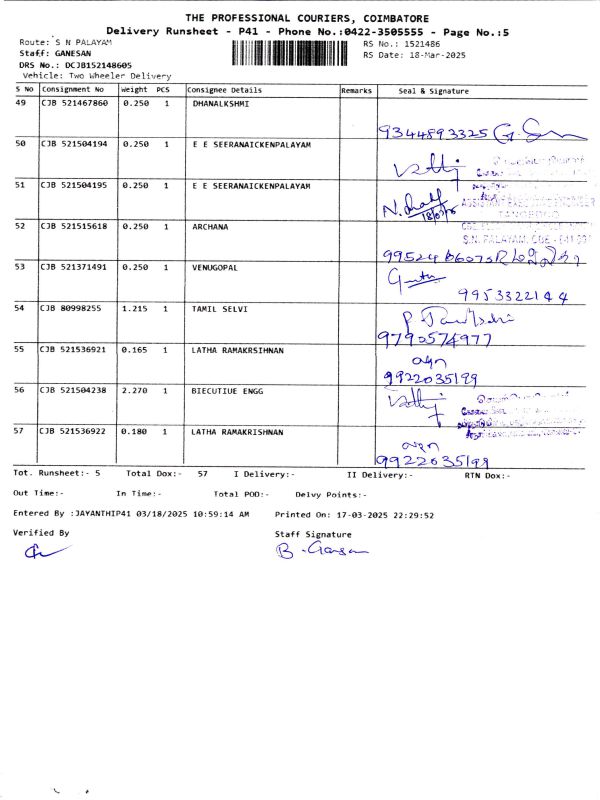 THE PROFESSIONAL COURIERS, COIMBATORE
Delivery Runsheet - P41 - Phone No.:0422-3505555 - Page No.:5
Route: S N PALAYAM
RS No.: 1521486
Staff: GANESAN
RS Date: 18-Mar-2025
DRS No.: DCJB152148605
Vehicle: Two Wheeler Delivery
S No Consignment No Weight PCS Consignee Details Remarks Seal & Signature
49 CJB 521467860 0.250 1 DHANALKSHMI
9344893325
50 CJB 521504194 0.250 1 E E SEERANAICKENPALAYAM
51 CJB 521504195 0.250 1 E E SEERANAICKENPALAYAM
52 CJB 521515618 0.250 1 ARCHANA
S.N. PALAYAM, CBE - 641
53 CJB 521371491 0.250 1 VENUGOPAL
9953322144
54 CJB 80998255 1.215 1 TAMIL SELVI
9790574977
55 CJB 521536921 0.165 1 LATHA RAMAKRSIHNAN
9922035199
56 CJB 521504238 2.270 1 BIECUTIUE ENGG
57 CJB 521536922 0.180 1 LATHA RAMAKRISHNAN
9922035199
Tot. Runsheet:- 5 Total Dox:- 57 I Delivery:- II Delivery:- RTN Dox:-
Out Time:- In Time:- Total POD:- Delvy Points:-
Entered By :JAYANTHIP41 03/18/2025 10:59:14 AM Printed On: 17-03-2025 22:29:52
Verified By Staff Signature